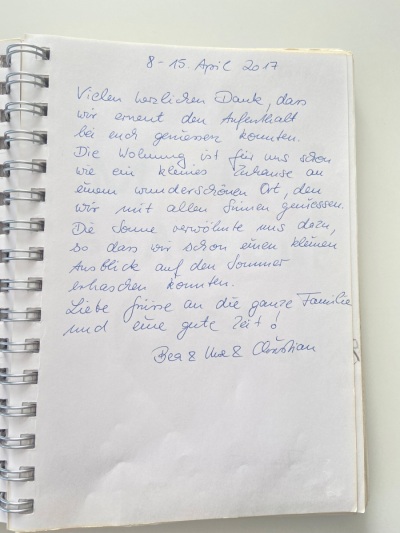 8 - 15 April 2017
Vielen herzlichen Dank, dass
wir erneut den Aufenthalt
bei euch geniessen konnten.
Die Wohnung ist für uns schon
wie ein kleines Zuhause an
einem wunderschönen Ort, den
wir mit allen Sinnen geniessen.
Die Sonne verwöhnte uns dazu,
so dass wir schon einen kleinen
Ausblick auf den Sommer
erhaschen konnten.
Liebe Grüsse an die ganze Familie
und eine gute Zeit!
Bea & & Christian